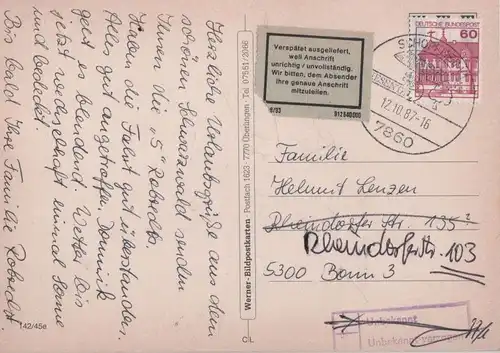 Herzliche Urlaubsgrüße aus dem
schönen Schwarzwald senden
Ihnen die "5" Roberdts.
Haben die Fahrt gut überstanden.
Alles gut angetroffen. Dominik
geht es blendend. Wetter bis
jetzt wechselhaft einmal Sonne
und bedeckt.
Bis bald Ihre Familie Roberdt
142/456
Werner-Bildpostkarten · Postfach 1623 · 7770 Überlingen · Tel. 07551/2066
CL
Verspätet ausgeliefert,
weil Anschrift
unrichtig / unvollständig.
Wir bitten, dem Absender
Ihre genaue Anschrift
mitzuteilen.
912 640 000
DEUTSCHE BUNDESPOST
60
12.10.87-16
7860
Familie
Helmut Lenzen
Rheindorfer Str. 135?
Rheindorferstr. 103
5300 Bonn 3
Unbekannt
Unbekannt verzogen